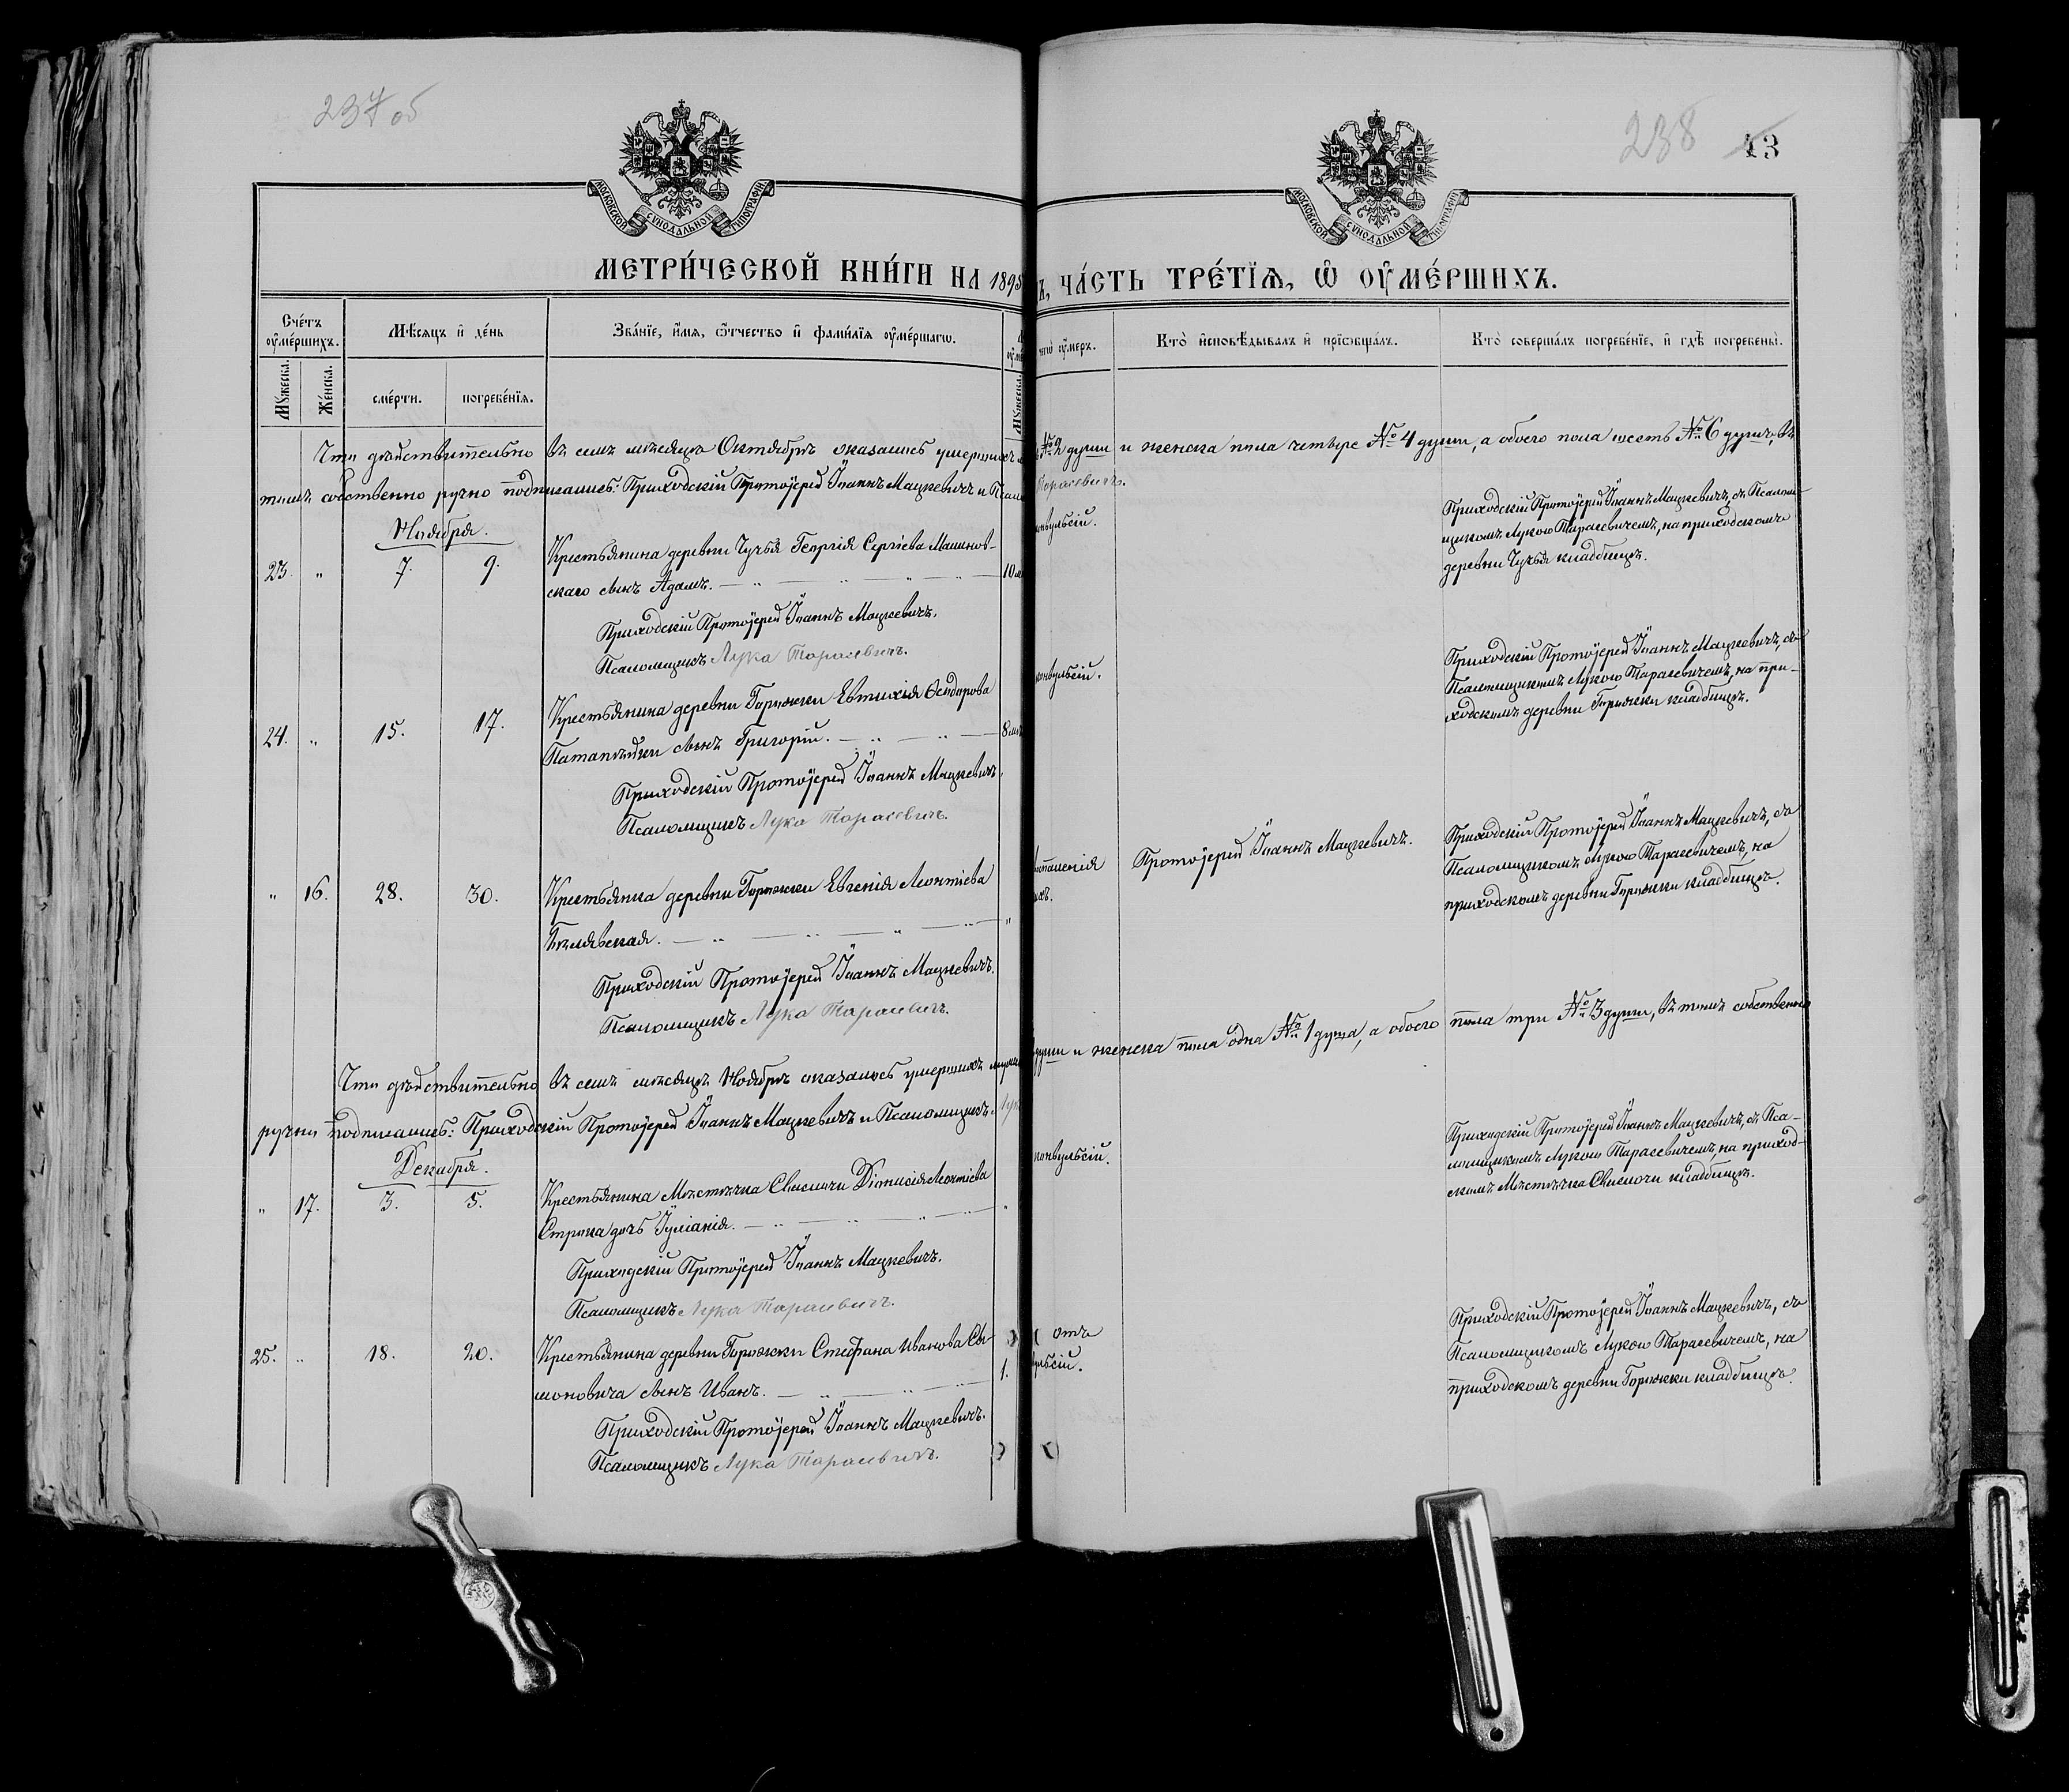 237 об
238 13
МОСКОВСКОЙ СУНОДАЛЬНОЙ ТИПОГРАФІИ
МОСКОВСКОЙ СУНОДАЛЬНОЙ ТИПОГРАФІИ
МЕТРИ́ЧЕСКОЙ КНИ́ГИ НА 1895
Ъ, ЧА́СТЬ ТРЕ́ТЇѦ, Ѡ҆ ОУ҆МЕ́РШИХЪ.
Сче́тъ оу҆ме́ршихъ.
Мѣ́сяцъ и҆ де́нь
Зва́нїе, и҆́мя, ѻ҆́тчество и҆ фами́лїя оу҆ме́ршагѡ.
Му́жеска.
Же́нска.
сме́рти.
погребе́нїя.
Му́жеска.
чегѡ̀ оу҆́меръ.
Кто̀ и҆сповѣ́дывалъ и҆ прїѡбща́лъ.
Кто̀ соверша́лъ погребе́нїе, и҆ гдѣ̀ погребены̀.
Что дѣйствительно въ семъ мѣсяцѣ Октябрѣ оказалось умершихъ
№ 2 души и женска пола четыре № 4 души, а обоего пола шесть № 6 душъ, въ
томъ собственно ручно подписались: Приходскій Протоіерей Іоаннъ Мацкевичъ и
Тарасевичъ.
Ноября.
23. " 7. 9. Крестьянина деревни Чучья Георгія Сергіева Малинов-
скаго сынъ Адамъ. 10
Приходскій Протоіерей Іоаннъ Мацкевичъ.
Псаломщикъ Лука Тарасевичъ.
нвульсій.
Приходскій Протоіерей Іоаннъ Мацкевичъ, съ Псалом-
щикомъ Лукою Тарасевичемъ, на приходскомъ
деревни Чучья кладбищѣ.
24. " 15. 17. Крестьянина деревни Горожки Евтихія
сынъ Григорій. 8
Приходскій Протоіерей Іоаннъ Мацкевичъ.
Псаломщикъ Лука Тарасевичъ.
конвульсій.
Приходскій Протоіерей Іоаннъ Мацкевичъ, съ
Псаломщикомъ Лукою Тарасевичемъ, на при-
ходскомъ деревни Горожки кладбищѣ.
" 16. 28. 30. Крестьянка деревни Горожки Евгенія Леонтіева
Бѣлявская. "
Приходскій Протоіерей Іоаннъ Мацкевичъ.
Псаломщикъ Лука Тарасевичъ.
Протоіерей Іоаннъ Мацкевичъ.
Приходскій Протоіерей Іоаннъ Мацкевичъ, съ
Псаломщикомъ Лукою Тарасевичемъ, на
приходскомъ деревни Горожки кладбищѣ.
Что дѣйствительно въ семъ мѣсяцѣ Ноябрѣ оказалось умершихъ
души и женска пола одна № 1 душа, а обоего пола три № 3 души, въ томъ собственно
ручно подписались: Приходскій Протоіерей Іоаннъ Мацкевичъ и Псаломщикъ
Декабря.
" 17. 3. 5. Крестьянина Мѣстечка Свислочи Діонисія Леонтіева
дочь Іуліанія. "
Приходскій Протоіерей Іоаннъ Мацкевичъ.
Псаломщикъ Лука Тарасевичъ.
конвульсій.
Приходскій Протоіерей Іоаннъ Мацкевичъ, съ Пса-
ломщикомъ Лукою Тарасевичемъ, на приход-
скомъ Мѣстечка Свислочи кладбищѣ.
25. " 18. 20. Крестьянина деревни Горожки Стефана Иванова Сы-
моновича сынъ Иванъ. 1.
Приходскій Протоіерей Іоаннъ Мацкевичъ.
Псаломщикъ Лука Тарасевичъ.
отъ
ульсій.
Приходскій Протоіерей Іоаннъ Мацкевичъ, съ
Псаломщикомъ Лукою Тарасевичемъ, на
приходскомъ деревни Горожки кладбищѣ.